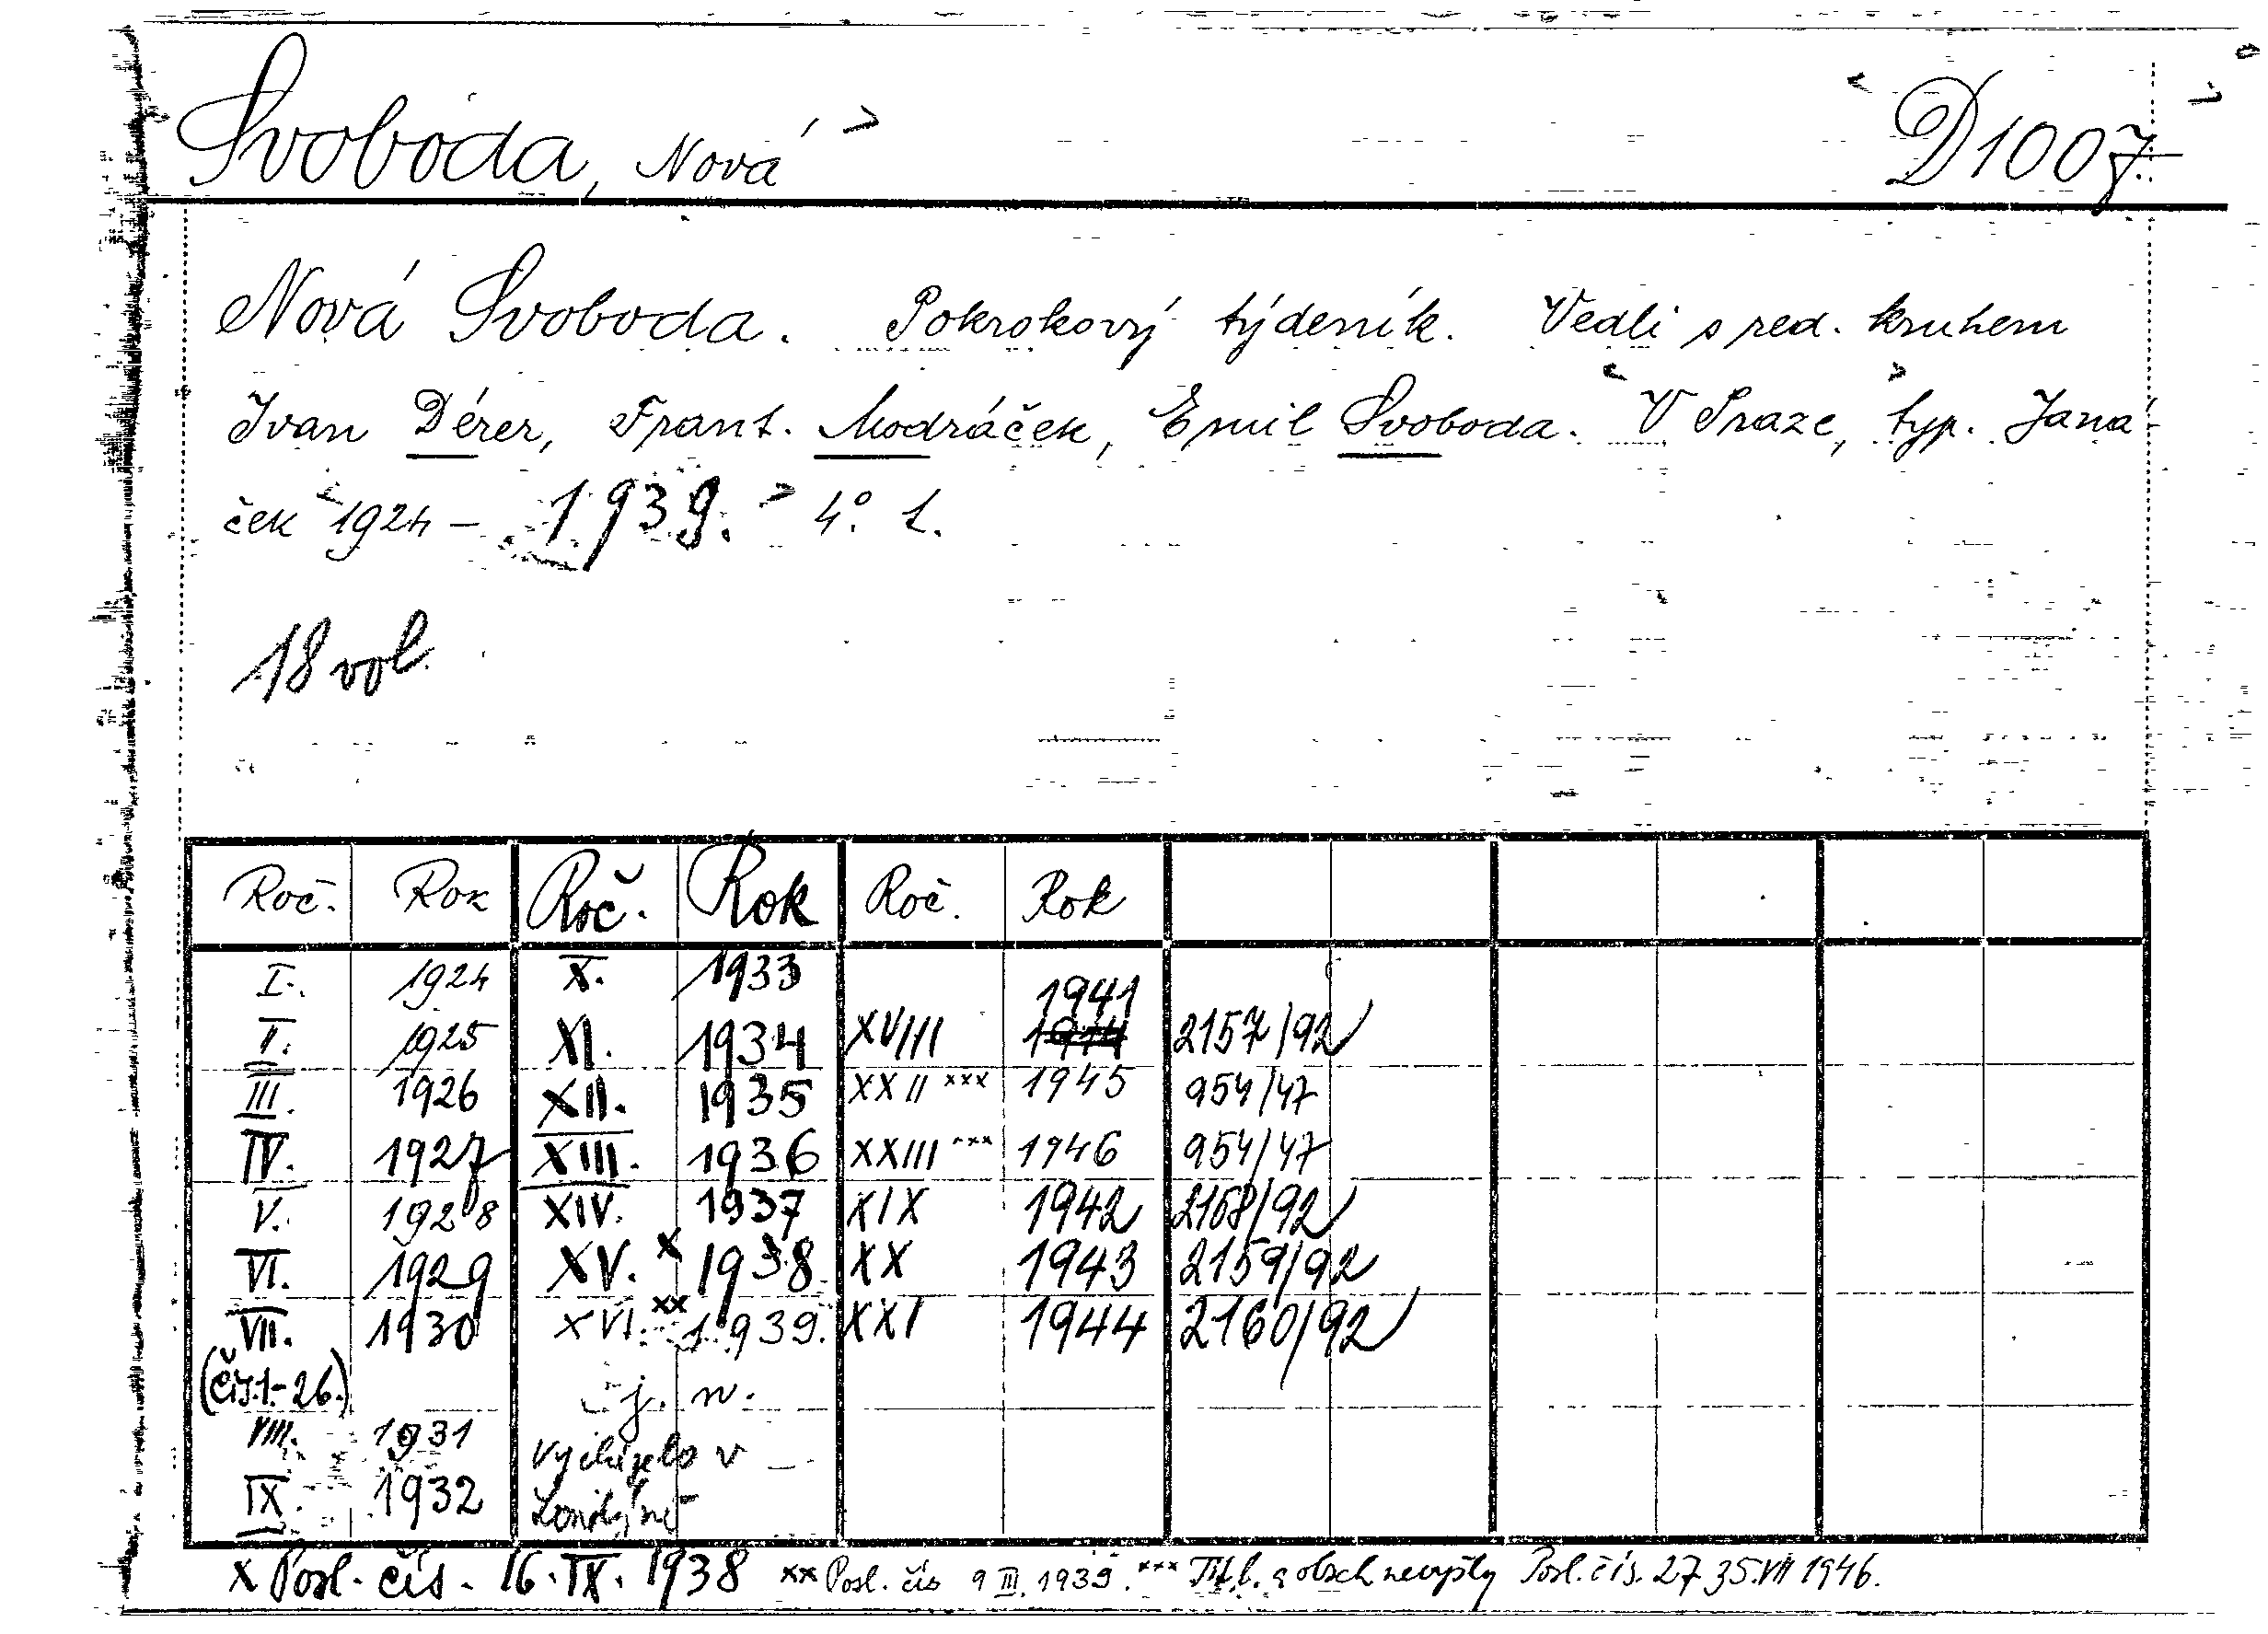 Svoboda, Nová > < D 1007. >
Nová Svoboda. Pokrokový týdeník. Vedli s red. kruhem
Ivan Dérer, Frant. Modráček, Emil Svoboda. < V Praze, > typ. Jana-
ček < 1924 – 1939. > 4°. 1.
18 vol.
Roč. Rok Roč. Rok Roč. Rok
I. 1924 X. 1933
1941
II. 1925 XI. 1934 XVIII 1944 2157/92
III. 1926 XII. 1935 XXII xxx 1945 954/47
IV. 1927 XIII. 1936 XXIII xxx 1946 954/47
V. 1928 XIV. 1937 XIX 1942 2158/92
VI. 1929 XV. x 1938 XX 1943 2159/92
VII. 1930 XVI. xx 1939. XXI 1944 2160/92
(čís. 1-26.) j. n.
VIII. 1931 Vycházelo v
IX. 1932 Londýně
x Posl. čís. 16. IX. 1938 xx Posl. čís 9 III. 1939. xxx Tit. l. a obsah nevyšly Posl. čís. 27 35. VII 1946.